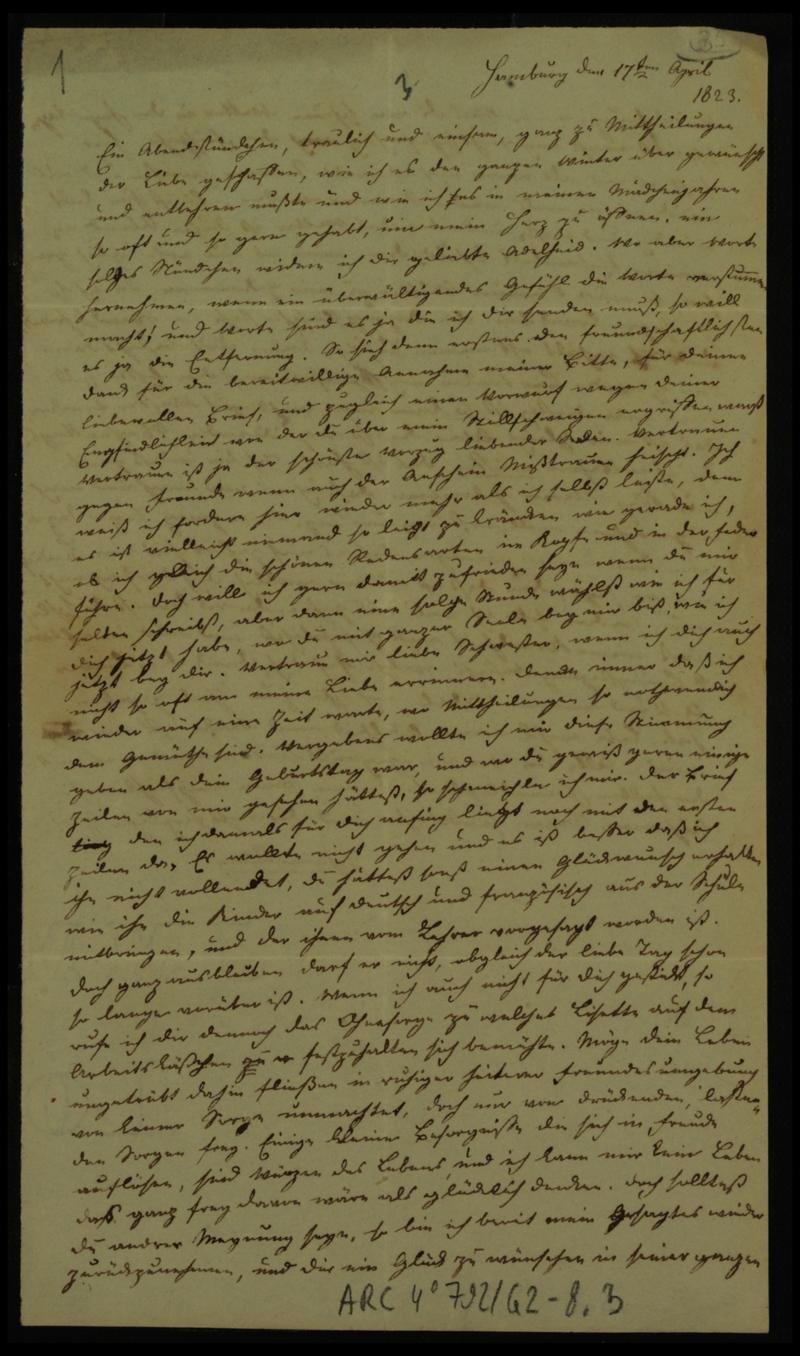 1
3
Hamburg den 17ten April
1823.
Ein Abendstündchen, traulich und einsam, ganz zu Mittheilungen
der Liebe geschaffen, wie ich es den ganzen Winter über gewünscht
und entbehren mußte und wie ich sie in meinen Mädchenjahren
so oft und so gern gehabt, um mein Herz zu öffnen, ein
solches Stündchen widme ich dir geliebte Adelheid. Wo aber Worte
hernehmen, wenn ein überwältigendes Gefühl die Worte verstummen
macht; und Worte sind es ja die ich dir senden muß, so will
es ja die Entfernung. So sich denn erstens den freundschaftlichsten
Dank für die bereitwillige Annahme meiner Bitte, für deinen
liebevollen Brief, und zugleich einen Vorwurf wegen deiner
Empfindlichkeit von der du über mein Stillschweigen ergriffen warst
Vertrauen ist ja der schönste Vorzug liebender Seelen. Vertrauen
gegen Freunde wenn auch der Anschein Mißtrauen heischt. Ich
weiß ich fordere hier wieder mehr als ich selbst leiste, denn
es ist vielleicht niemand so leicht zu kränken wie gerade ich,
ob ich gleich die schönen Redensarten im Kopfe und in der Feder
führe. Doch will ich gern damit zufrieden seyn wenn du mir
selten schreibst, aber dann eine solche Stunde wählst wie ich für
dich jetzt habe, wo du mit ganzer Seele bey mir bist, wie ich
jetzt bey dir. Vertraue mir liebe Schwester, wenn ich dich auch
nicht so oft an meine Liebe erinnere. Denke immer daß ich
wieder auf eine Zeit warte, wo Mittheilungen so nothwendich
dem Gemüthe sind. Vergebens wollte ich mir diese Stimmung
geben als dein Geburtstag war, und wo du gewiß gerne einige
Zeilen von mir gesehen hättest, so schmeichle ich mir. Der Brief
den ich damals für dich anfing liegt noch mit den ersten
Zeilen da, Es wollte nicht gehen und es ist besser daß ich
ihn nicht vollendet, du hättest sonst einen Glückwunsch erhalten
wie ihn die Kinder auf deutsch und französisch aus der Schule
mitbringen, und der ihnen vom Lehrer vorgesagt worden ist.
Doch ganz ausbleiben darf er nicht, obgleich der liebe Tag schon
so lange vorüber ist. Wenn ich auch nicht für dich gestickt, so
rufe ich dir dennoch das Ohnesorge zu welches Lisette auf dem
Arbeitskästchen festzuhalten sich bemühte. Möge dein Leben
ungetrübt dahin fließen in ruhiger heiterer Freundesumgebung
von keiner Sorge umnachtet, doch nur von drückenden, lasten-
den Sorgen frey. Einige kleine Besorgnisse die sich in Freude
auflösen, sind Würzen des Lebens, und ich kann mir kein Leben
daß ganz frey davon wäre als glücklich denken. Doch solltest
du andrer Meynung seyn, so bin ich bereit mein Gesagtes wieder
zurückzunehmen, und dir ein Glück zu wünschen in seiner ganzen
ARC 4° 792/G2-8.3